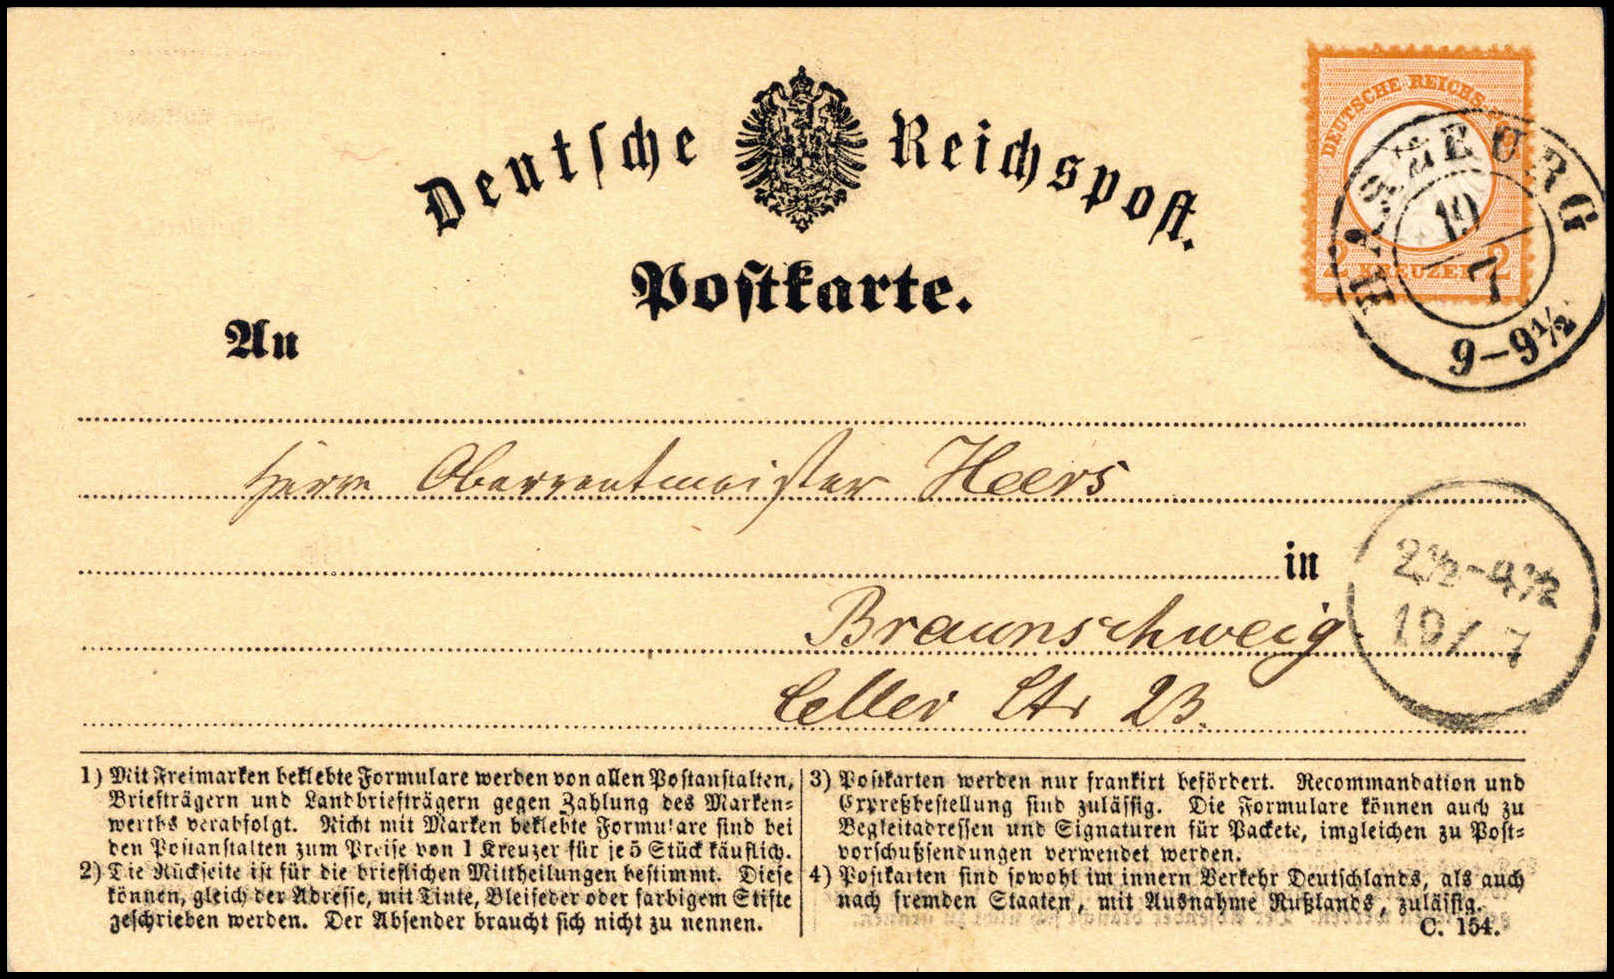 Deutsche Reichspost.
DEUTSCHE REICHS-
2 KREUZER 2
19/7
9-9½
Postkarte.
An
Herrn Oberrentmeister Heers
in
2½-4½
19/7
Braunschweig
Celler Str 23.
1) Mit Freimarken beklebte Formulare werden von allen Postanstalten,
Briefträgern und Landbriefträgern gegen Zahlung des Marken=
werths verabfolgt. Nicht mit Marken beklebte Formulare sind bei
den Postanstalten zum Preise von 1 Kreuzer für je 5 Stück käuflich.
2) Die Rückseite ist für die brieflichen Mittheilungen bestimmt. Diese
können, gleich der Adresse, mit Tinte, Bleifeder oder farbigem Stifte
geschrieben werden. Der Absender braucht sich nicht zu nennen.
3) Postkarten werden nur frankirt befördert. Recommandation und
Expreßbestellung sind zulässig. Die Formulare können auch zu
Begleitadressen und Signaturen für Packete, imgleichen zu Post=
vorschußsendungen verwendet werden.
4) Postkarten sind sowohl im innern Verkehr Deutschlands, als auch
nach fremden Staaten, mit Ausnahme Rußlands, zulässig.
C. 154.